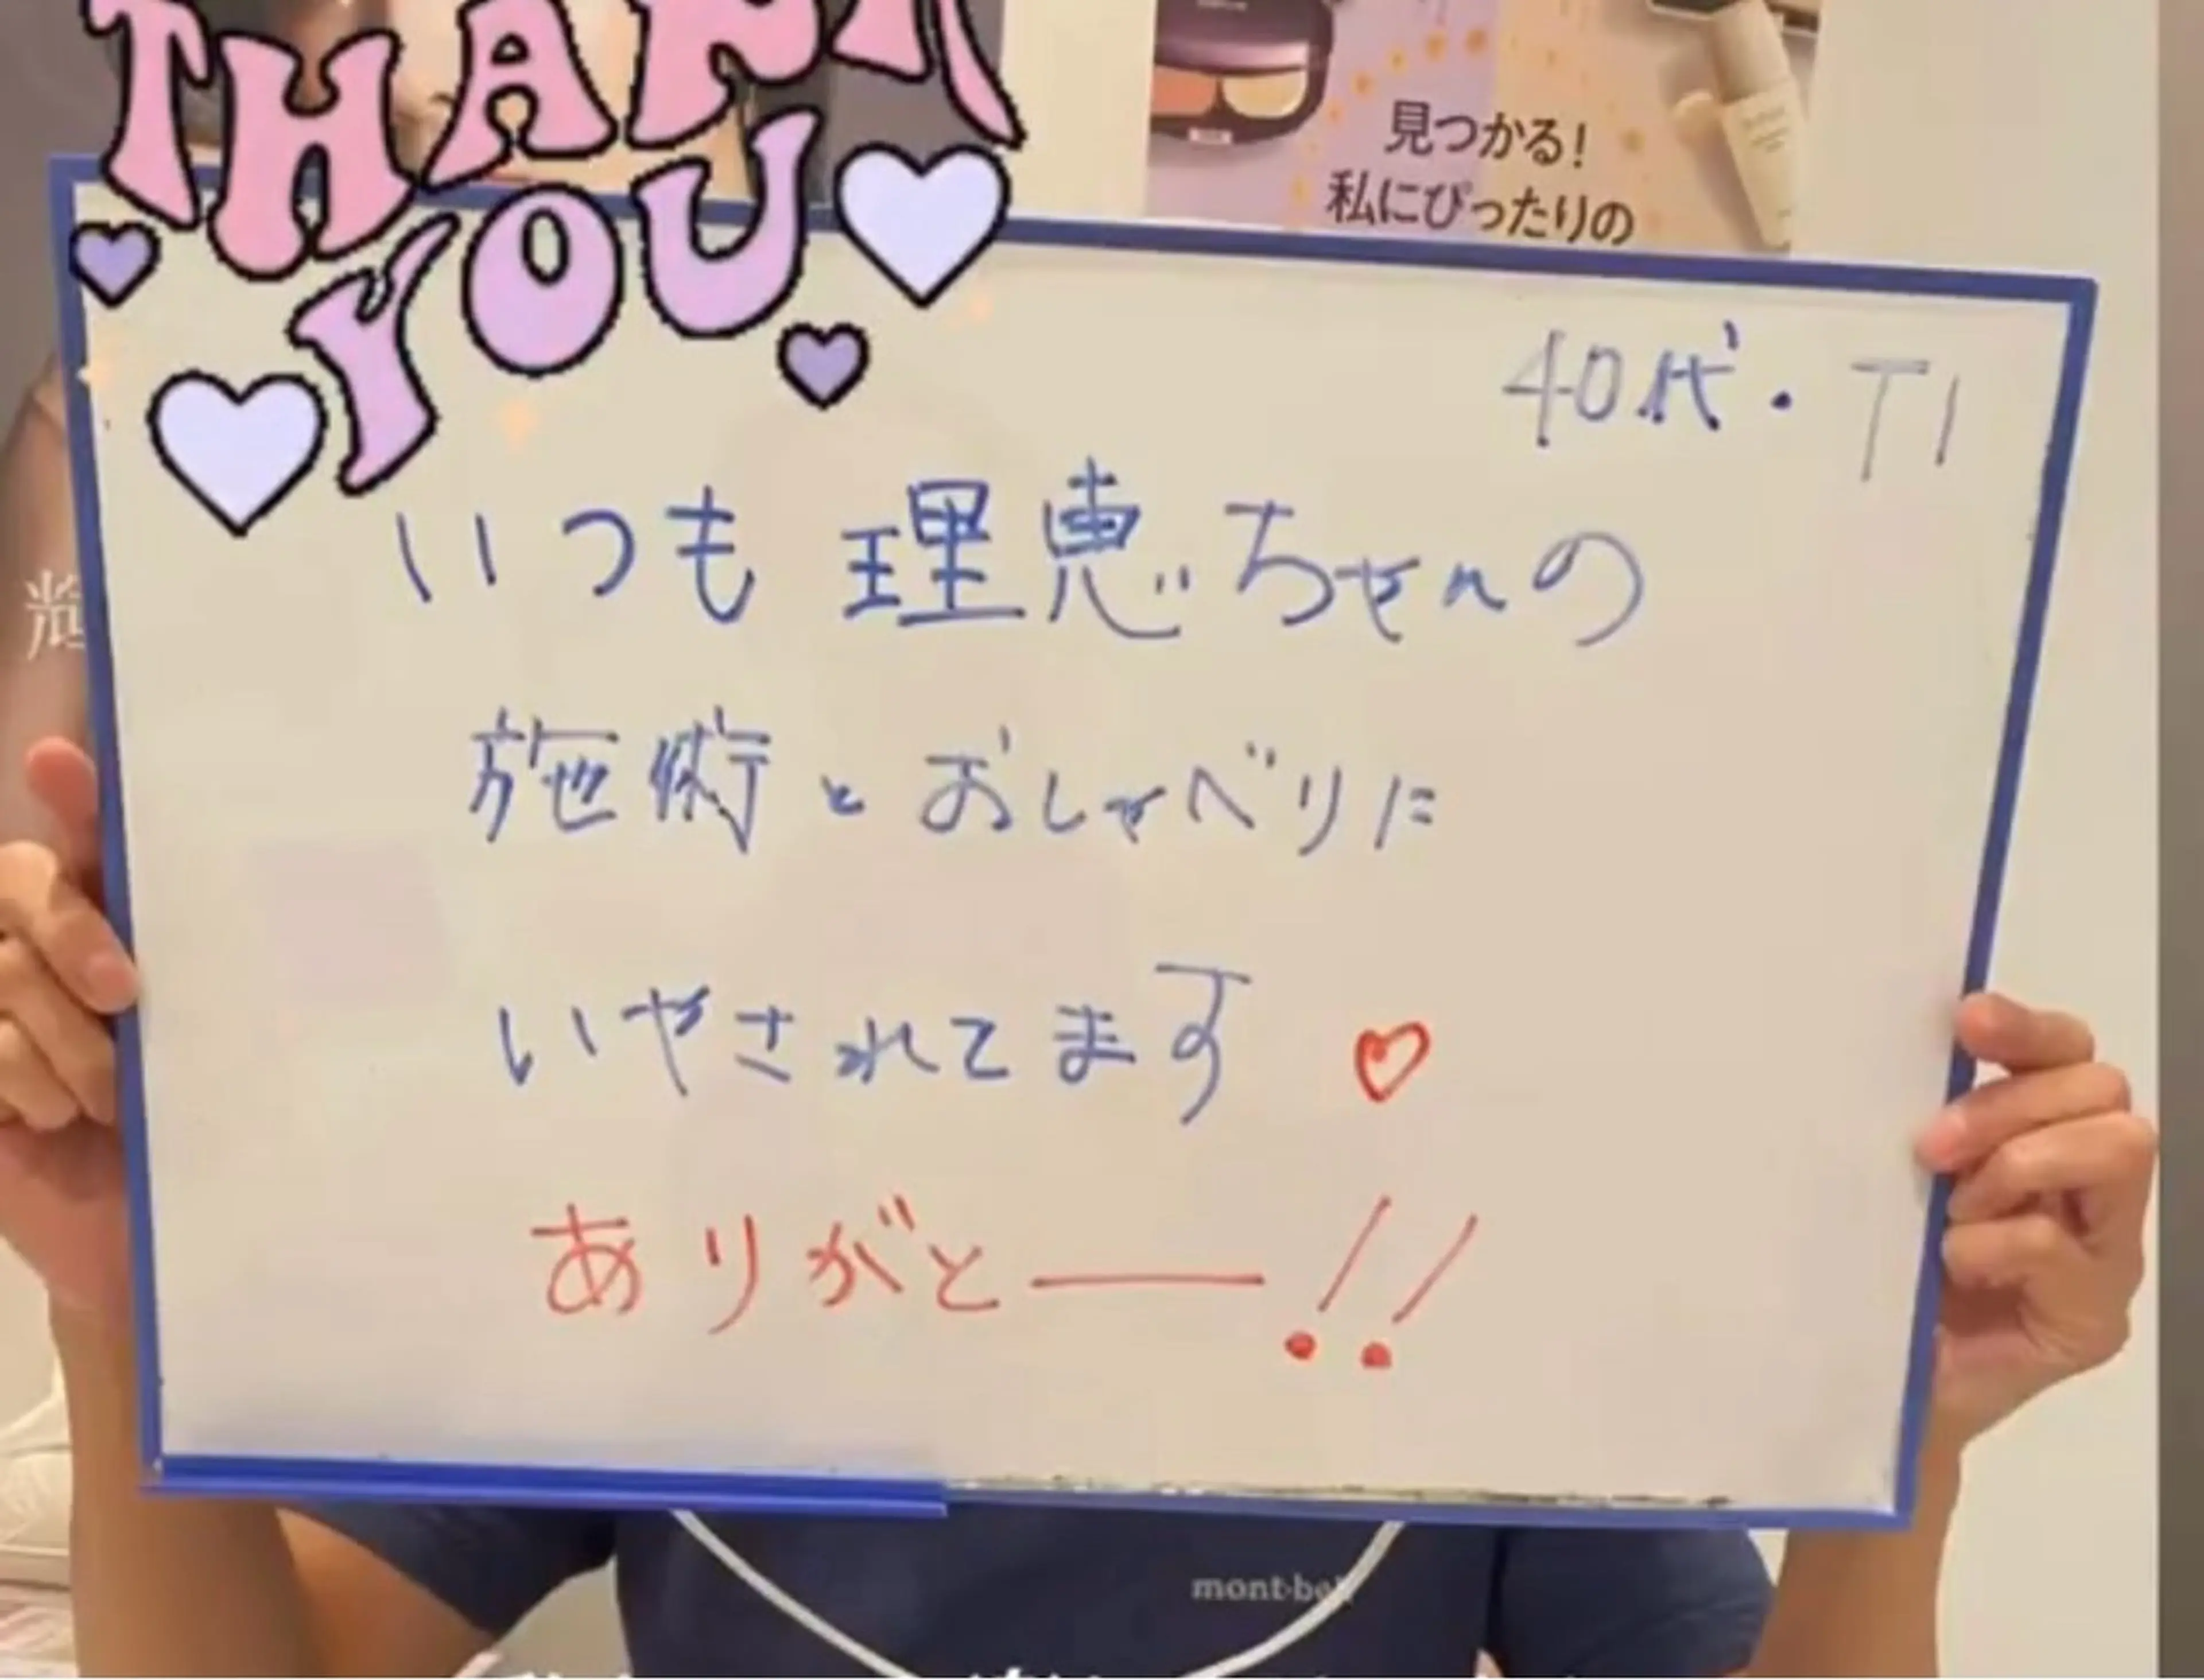 THANK
YOU
見つかる!
私にぴったりの
40代・TI
いつも理恵ちゃんの
施術とおしゃべりに
いやされてます♡
ありがとー!!
mont-bell